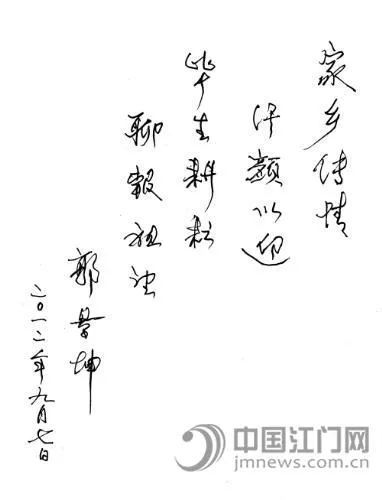 家乡传情
汗颜以迎
毕生耕耘
聊报祖池
郭景坤
二〇一二年九月七日
中国江门网
jmnews.com.cn